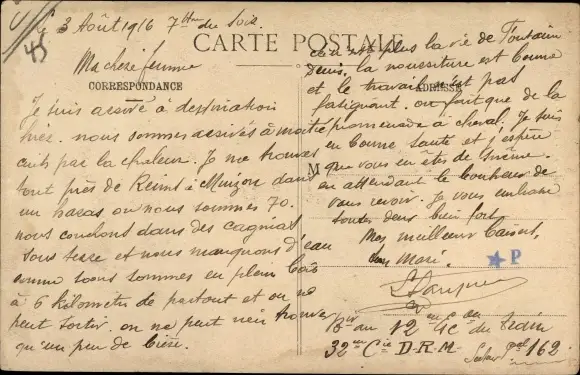 3 Août 1916 7 h du Soir.
CARTE POSTALE
Ma chère femme
CORRESPONDANCE
Je suis arrivé à destination
hier. nous sommes arrivés à moitié
cuits par la chaleur. Je me trouve
tout près de Reims à Muizon dans
un haras, ou nous sommes 70.
nous couchons dans des cagnias
sous terre et nous manquons d'eau
comme nous sommes en plein bois
à 6 kilomètre de partout et on ne
peut sortir. on ne peut rien trouver
qu'un peu de bière.
plus la vie de Fontain
Denis. la nourriture est bonne
et le travail n'est pas
ADRESSE
fatiguant. on fait que de la
promenade à cheval. Je suis
en bonne santé et j'espère
M
que vous en êtes de même.
en attendant le bonheur de
vous revoir. Je vous embrasse
toutes deux bien fort.
Mes meilleurs baisers.
Mari.
P
au 12 du train
32 Cie D-R-M- 162